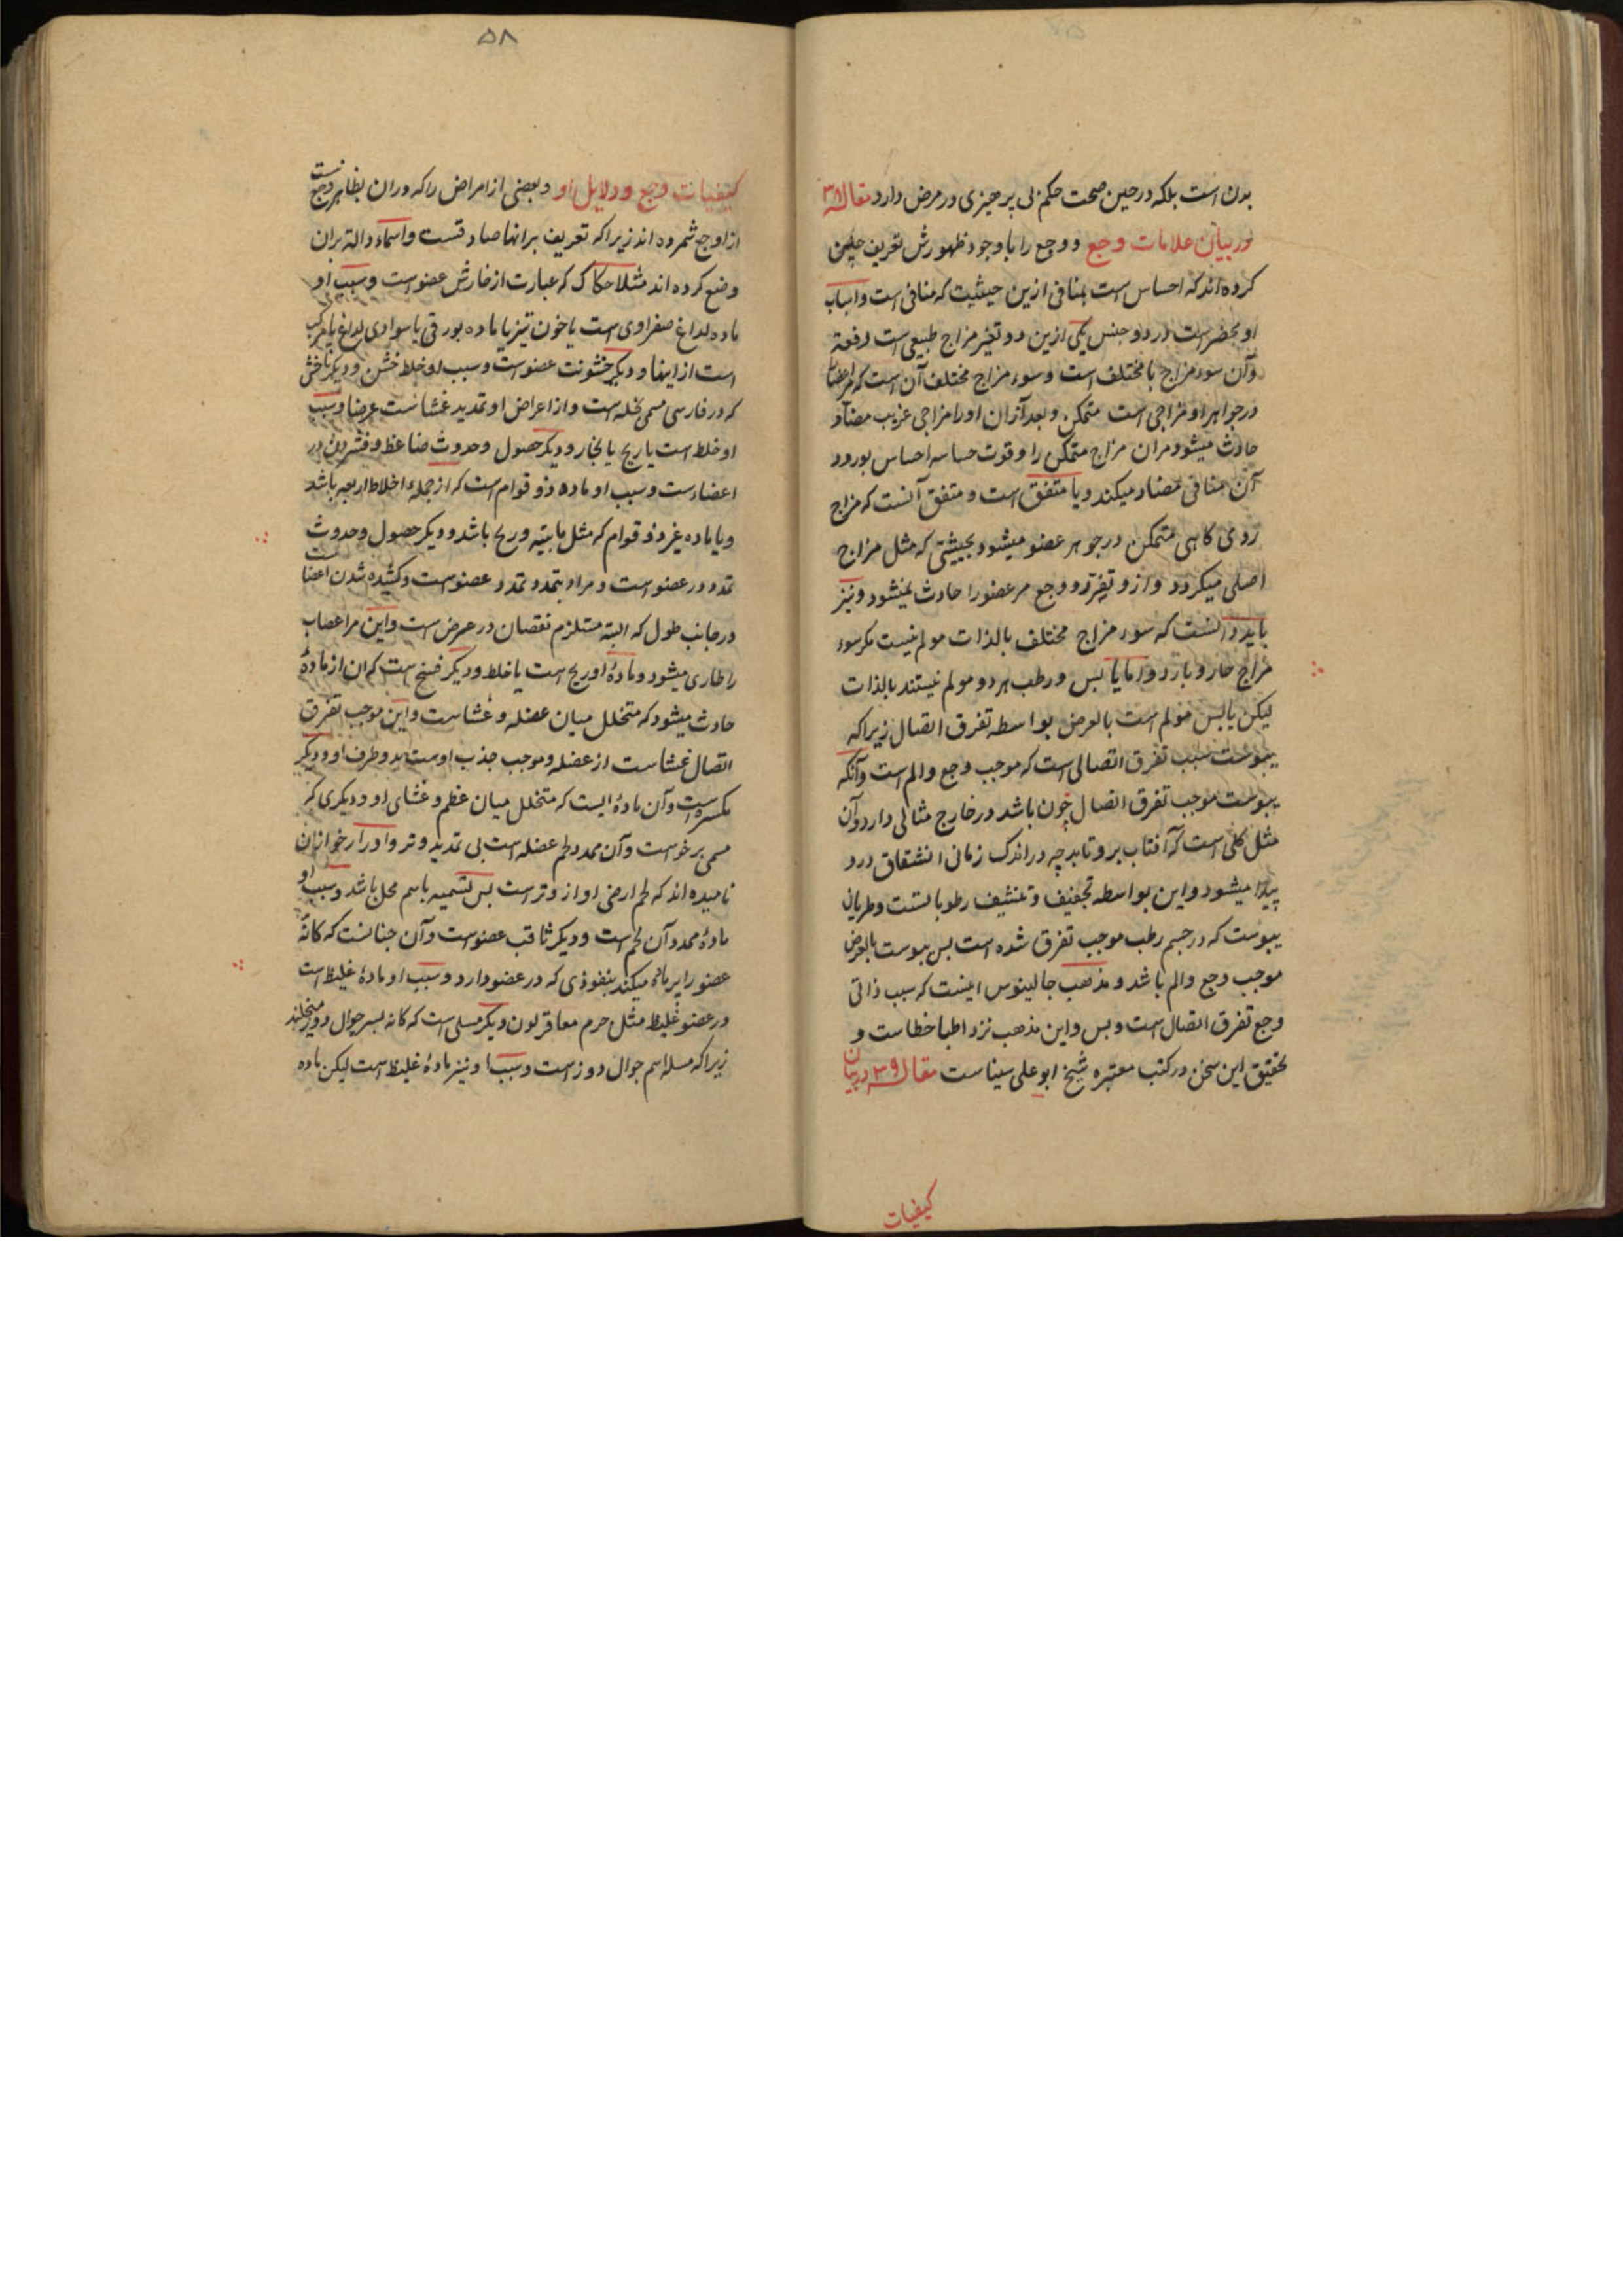 بدن است بلکه در حین صحت حکم لی پرحیزی در مرض دارد مقاله ۳۸
در بیان علامات وجع و وجع را با وجود ظهورش تعریف چنین
کرده اند که احساس است بمنافی ازین حیثیت که منافی است و اسباب
او بحضر است در دو جنس یکی ازین دو تغیر مزاج طبیعی است دفعة
وآن سوء مزاج یا مختلف است و سوء مزاج مختلف آن است که مر اعضا را
در جواهر او مزاجی است متمکن و بعد آزان او را مزاجی غریب مضاد
حادث میشود مران مزاج متمکن را و قوت حساسه احساس بورود
آن منافی مضاد میکند و یا متفق است و متفق آنست که مزاج
ردی کاهی متمکن در جوهر عضو میشود بحیثیتی که مثل مزاج
اصلی میکردد و ازو تغیر و وجع مر عضو را حادث نمیشود و نیز
باید دانست که سوء مزاج مختلف بالذات مولم نیست مکر سوء
مزاج حار و بارد و اما یابس و رطب هر دو مولم نیستند بالذات
لیکن یابس مولم است بالعرض بواسطه تفرق اتصال زیرا که
یبوست سبب تفرق اتصالی است که موجب وجع و الم است و آنکه
یبوست موجب تفرق اتصال چون باشد در خارج مثالی دارد و آن
مثل کلی است که آفتاب برو تابد چه در اندک زمانی انشقاق درو
پیدا میشود و این بواسطه تجفیف و تنشیف رطوباتست و طریان
یبوست که در جسم رطب موجب تفرق شده است بس یبوست بالعرض
موجب وجع و الم باشد و مذهب جالینوس اینست که سبب ذاتی
وجع تفرق اتصال است و بس و این مذهب نزد اطبا خطاست و
تحقیق این سخن در کتب معتبره شیخ ابو علی سیناست مقاله ۳۹ در بیان
کیفیات
۵۸
کیفیات وجع و دلایل او و بعضی از امراض را که دران بظاهر وجع نیست
از اوجاع شمرده اند زیرا که تعریف برانها صادقست و اسماء داله بران
وضع کرده اند مثلا حکاک که عبارت از خارش عضو است و سبب او
ماده لداغ صفراوی است یا خون تیز یا ماده بورقی یا سوادی لداغ یا مرکب
است از اینها و دیکر خشونت عضو است و سبب او خلط خشن و دیکر ناخس
که در فارسی مسمی بخله است و از اعراض او تمدید غشاست عرضا و سبب
او خلط است یا ریح یا بخار و دیکر حصول و حدوث ضاغط و فشردن در
اعضاء است و سبب او ماده ذو قوام است که از جمله اخلاط اربعه باشد
و یا ماده غیر ذو قوام که مثل مائیته و ریح باشد و دیکر حصول و حدوث
تمدد در عضو است و مراد بتمدد تمدد عضو است و کشیده شدن اعضا است
در جانب طول که البته مستلزم نقصان در عرض است و این مر اعصاب
را طاری میشود و ماده او ریح است یا خلط و دیکر فسخ است که ان از ماده
حادث میشود که متخلل میان عضله و غشاست و این موجب تفرق
اتصال غشاست از عضله و موجب جذب اوست بدو طرف او و دیکر
مکسر است وآن ماده ایست که متخلل میان عظم و غشای او و دیکری که
مسمی برخوست وآن ممدد لحم عضله است بی تمدید وتر و او را رخو ازان
نامیده اند که لحم ارخی او از وتر است بس تسمیه باسم محل باشد و سبب او
ماده ممدد آن لحم است و دیکر ثاقب عضو است وآن چنانست که کانه
عضو را بر مانه میکند بنفوذی که در عضو دارد و سبب او ماده غلیظ است
در عضو غلیظ مثل جرم معاء قولون و دیکر مسلی است که کانه بسر جوال دوز میخلند
زیرا که مسله اسم جوال دوز است و سبب او نیز ماده غلیظ است لیکن ماده